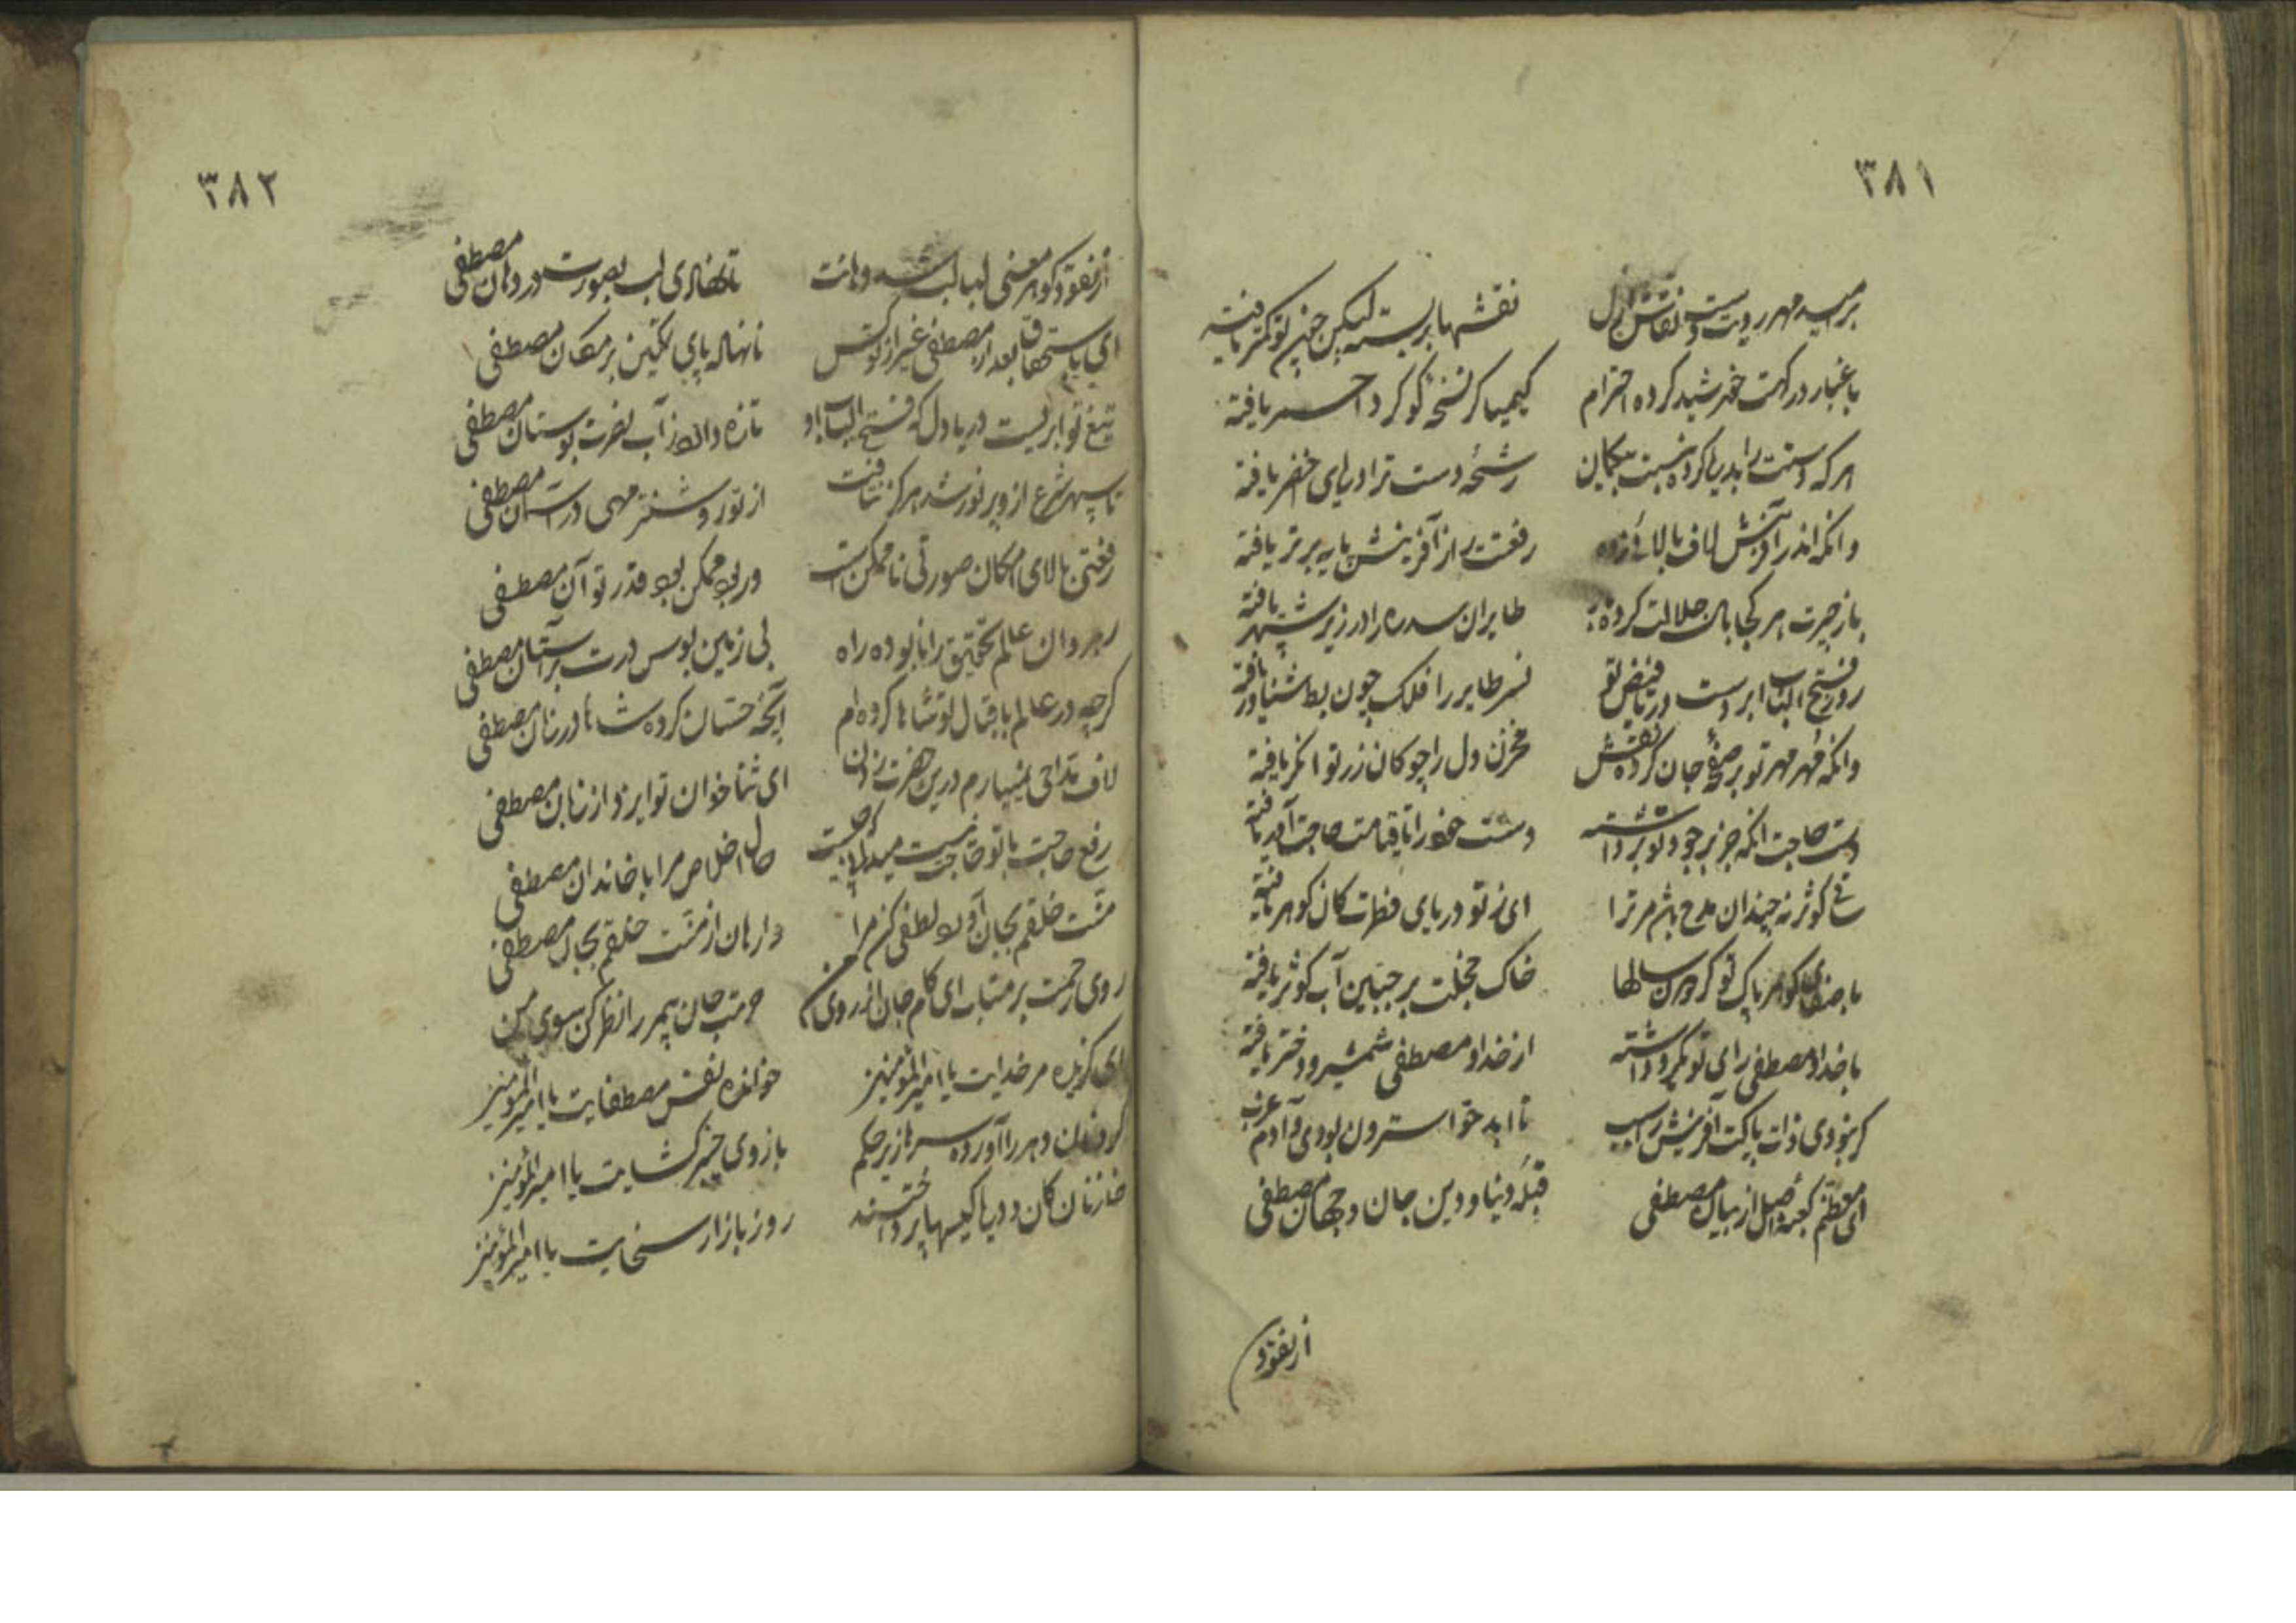 ۳۸۱
بر سپهر رویت نقاش ازل نقشها بر بسته لیکن چون تو کمتر یافته
با غبار درکهت خورشید کرده احترام کیمیا کر نسخهٔ کوکرد احمر یافته
هر که دستت را بدریا کرده نسبت بیکمان رشحهٔ دست ترا دریای اخضر یافته
وانکه اندر آفرینش لاف بالائی زده رفعتت را از آفرینش پایه برتر یافته
باز چترت هر کجا بال جلالت کرده باز طایران سدره را در زیر شهپر یافته
روز فتح الباب ابر دست دریا فیض تو نسر طایر را فلک چون بط شناور یافته
وانکه مهر مهر تو بر صفحهٔ جان کرده نقش مخزن دل را چو کان زر توانکر یافته
دست حاجت انکه جز بر جود تو برداشته دست خود را تا قیامت حاجت آور یافته
ساقی کوثر نه چندان مدح باشد مر ترا ای ز تو دریای فطرت کان کوهر یافته
با صفای کوهر پاک تو کردون سالها خاک خجلت بر جبین آب کوثر یافته
با خدا و مصطفی رای تو یکرو داشته از خدا و مصطفی شمشیر و دختر یافته
کر نبودی ذات پاکت آفرینش را سبب تا ابد حوا سترون بودی و آدم عزب
ای معظم کعبهٔ اصل از بیان مصطفی قبلهٔ دنیا و دین جان و جهان مصطفی
از نقود
۳۸۲
از نقود کوهر معنی لبالب شد دهانت تا نهادی لب بصورت در دهان مصطفی
ای باستحقاق بعد از مصطفی غیر از تو کس نانهاده پای تمکین بر مکان مصطفی
تیغ تو ابریست دریا دل که فتح الباب او تازه دارد ز آب نصرت بوستان مصطفی
تا سپهر شرع ازو پر نور شد هرکز نتافت از تو روشنتر مهی در آسمان مصطفی
رفتن بالای امکان صورتی ناممکن است ور بود ممکن بود قدر تو آن مصطفی
رهروان عالم تحقیق را نابوده راه بی زمین بوس درت بر آستان مصطفی
کرچه در عالم باقبال تو شاها کرده ام آنچه حسان کرده شاها در زمان مصطفی
لاف مداحی نمی یارم درین حضرت زدن ای ثناخوان تو ایزد از زبان مصطفی
رفع حاجت با تو حاجت نیست میدانی که چیست حال اخلاص مرا با خاندان مصطفی
منت خلقم بجان آورد لطفی کن مرا وارهان از منت خلقم بجان مصطفی
روی رحمت بر متاب ای کام جان از روی من حرمت جان پیمبر را نظر کن سوی من
ای کزیده مر خدایت یا امیر المؤمنین خوانده نفس مصطفایت یا امیر المؤمنین
کردنان دهر را آورده سرها زیر حکم بازوی خیبر کشایت یا امیر المؤمنین
خازنان کان و دریا کیسها پرداختند روز بازار سخایت یا امیر المؤمنین